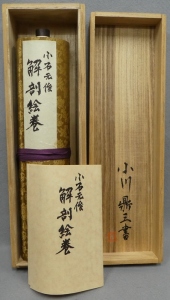 小石元俊
解剖絵巻
小石元俊
解剖絵巻
小川鼎三書